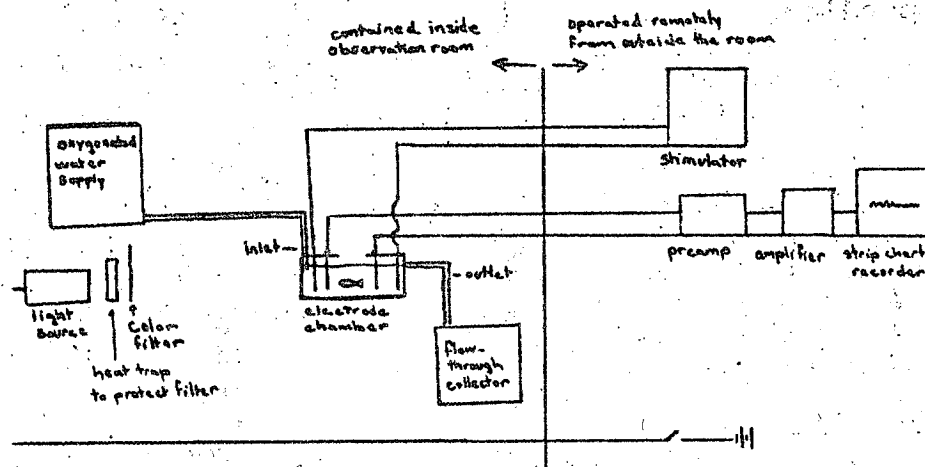 contained inside
observation room
operated remotely
from outside the room
oxygenated
water
supply
stimulator
inlet
outlet
preamp
amplifier
strip chart
recorder
light
source
color
filter
heat trap
to protect filter
electrode
chamber
flow-
through
collector